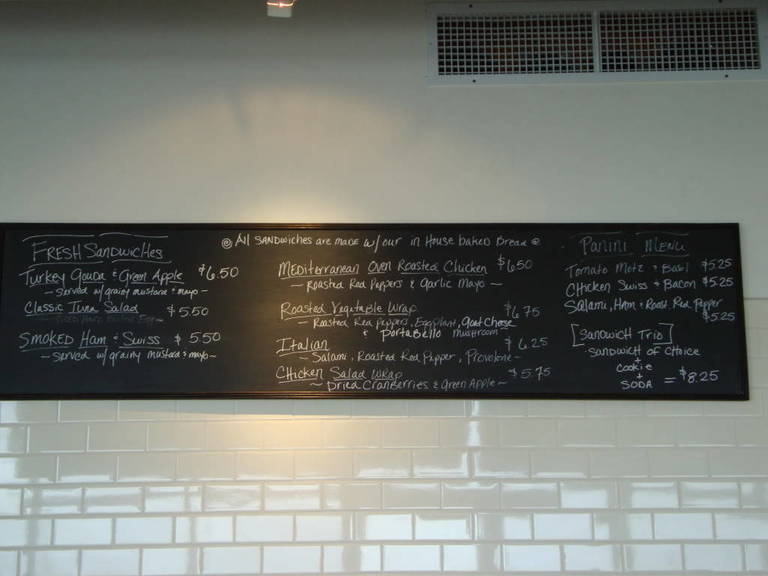 @ All SANDWICHES are made w/ our in House baked Bread @
FRESH SANDWICHES
Turkey Gouda & Green Apple $6.50
- Served w/ grainy mustard & mayo -
Classic Tuna Salad $5.50
Smoked Ham & Swiss $5.50
- Served w/ grainy mustard & mayo -
Mediterranean Oven Roasted Chicken $6.50
- Roasted Red Peppers & Garlic Mayo -
Roasted Vegetable Wrap $6.75
- Roasted Red Peppers, Eggplant, Goat Cheese
& Portabello mushroom -
Italian $6.25
- Salami, Roasted Red Pepper, Provolone -
Chicken Salad Wrap $5.75
- Dried Cranberries & Green Apple -
Panini Menu
Tomato Motz & Basil $5.25
Chicken Swiss & Bacon $5.25
Salami, Ham & Roast. Red Pepper
$5.25
[Sandwich Trio]
Sandwich of Choice
+
Cookie
+
SODA = $8.25